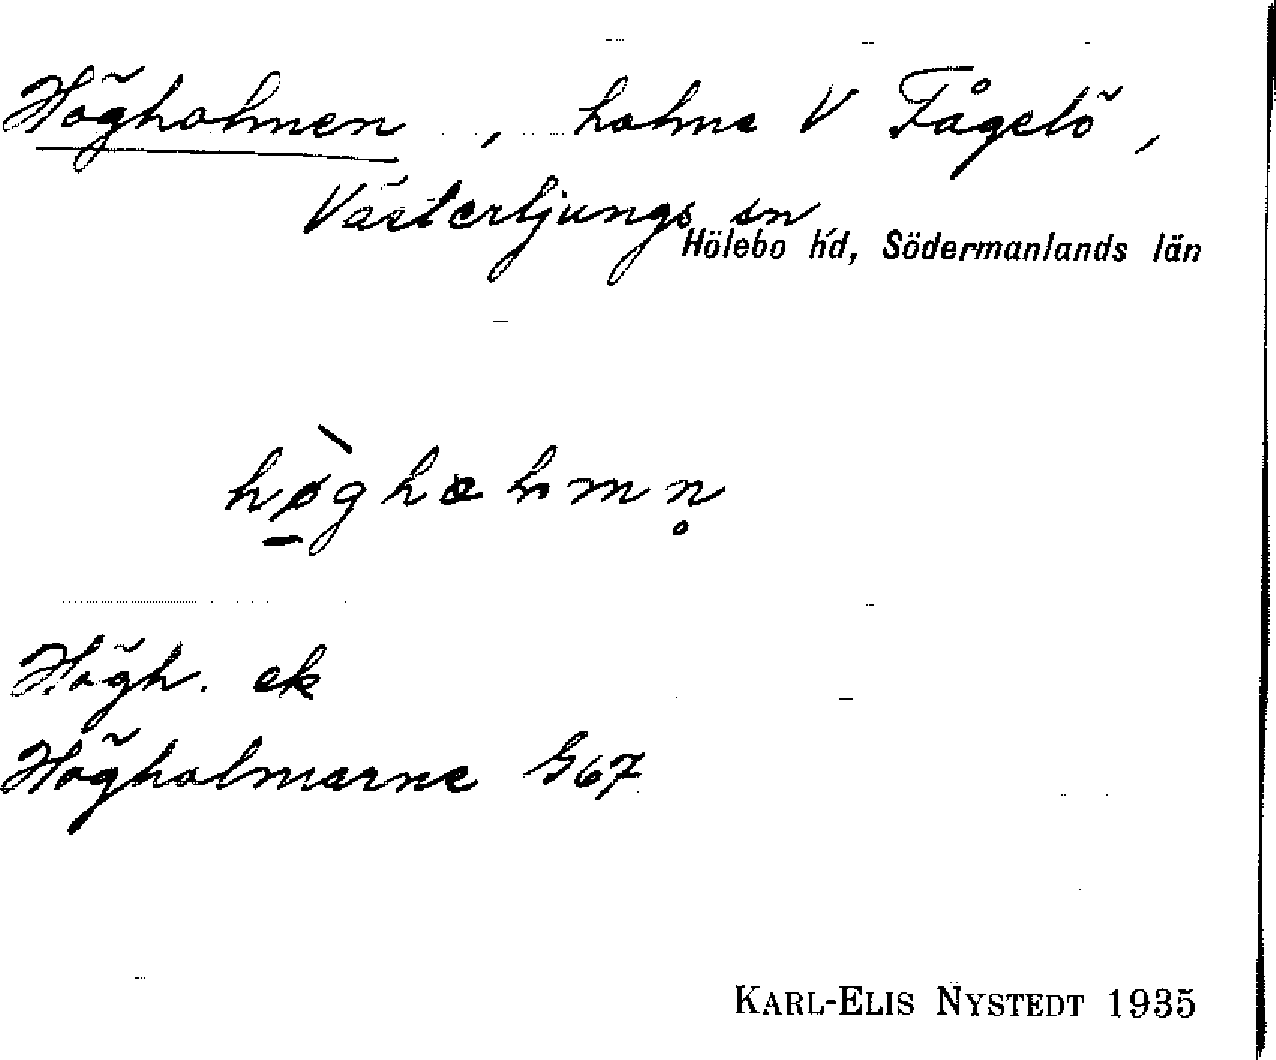 Högholmen, holme V Fågelö,
Västerljungs sn
Hölebo hd, Södermanlands län
hø̀ghæḷmn̥
Högh. ek
Högholmarne G67
KARL-ELIS NYSTEDT 1935